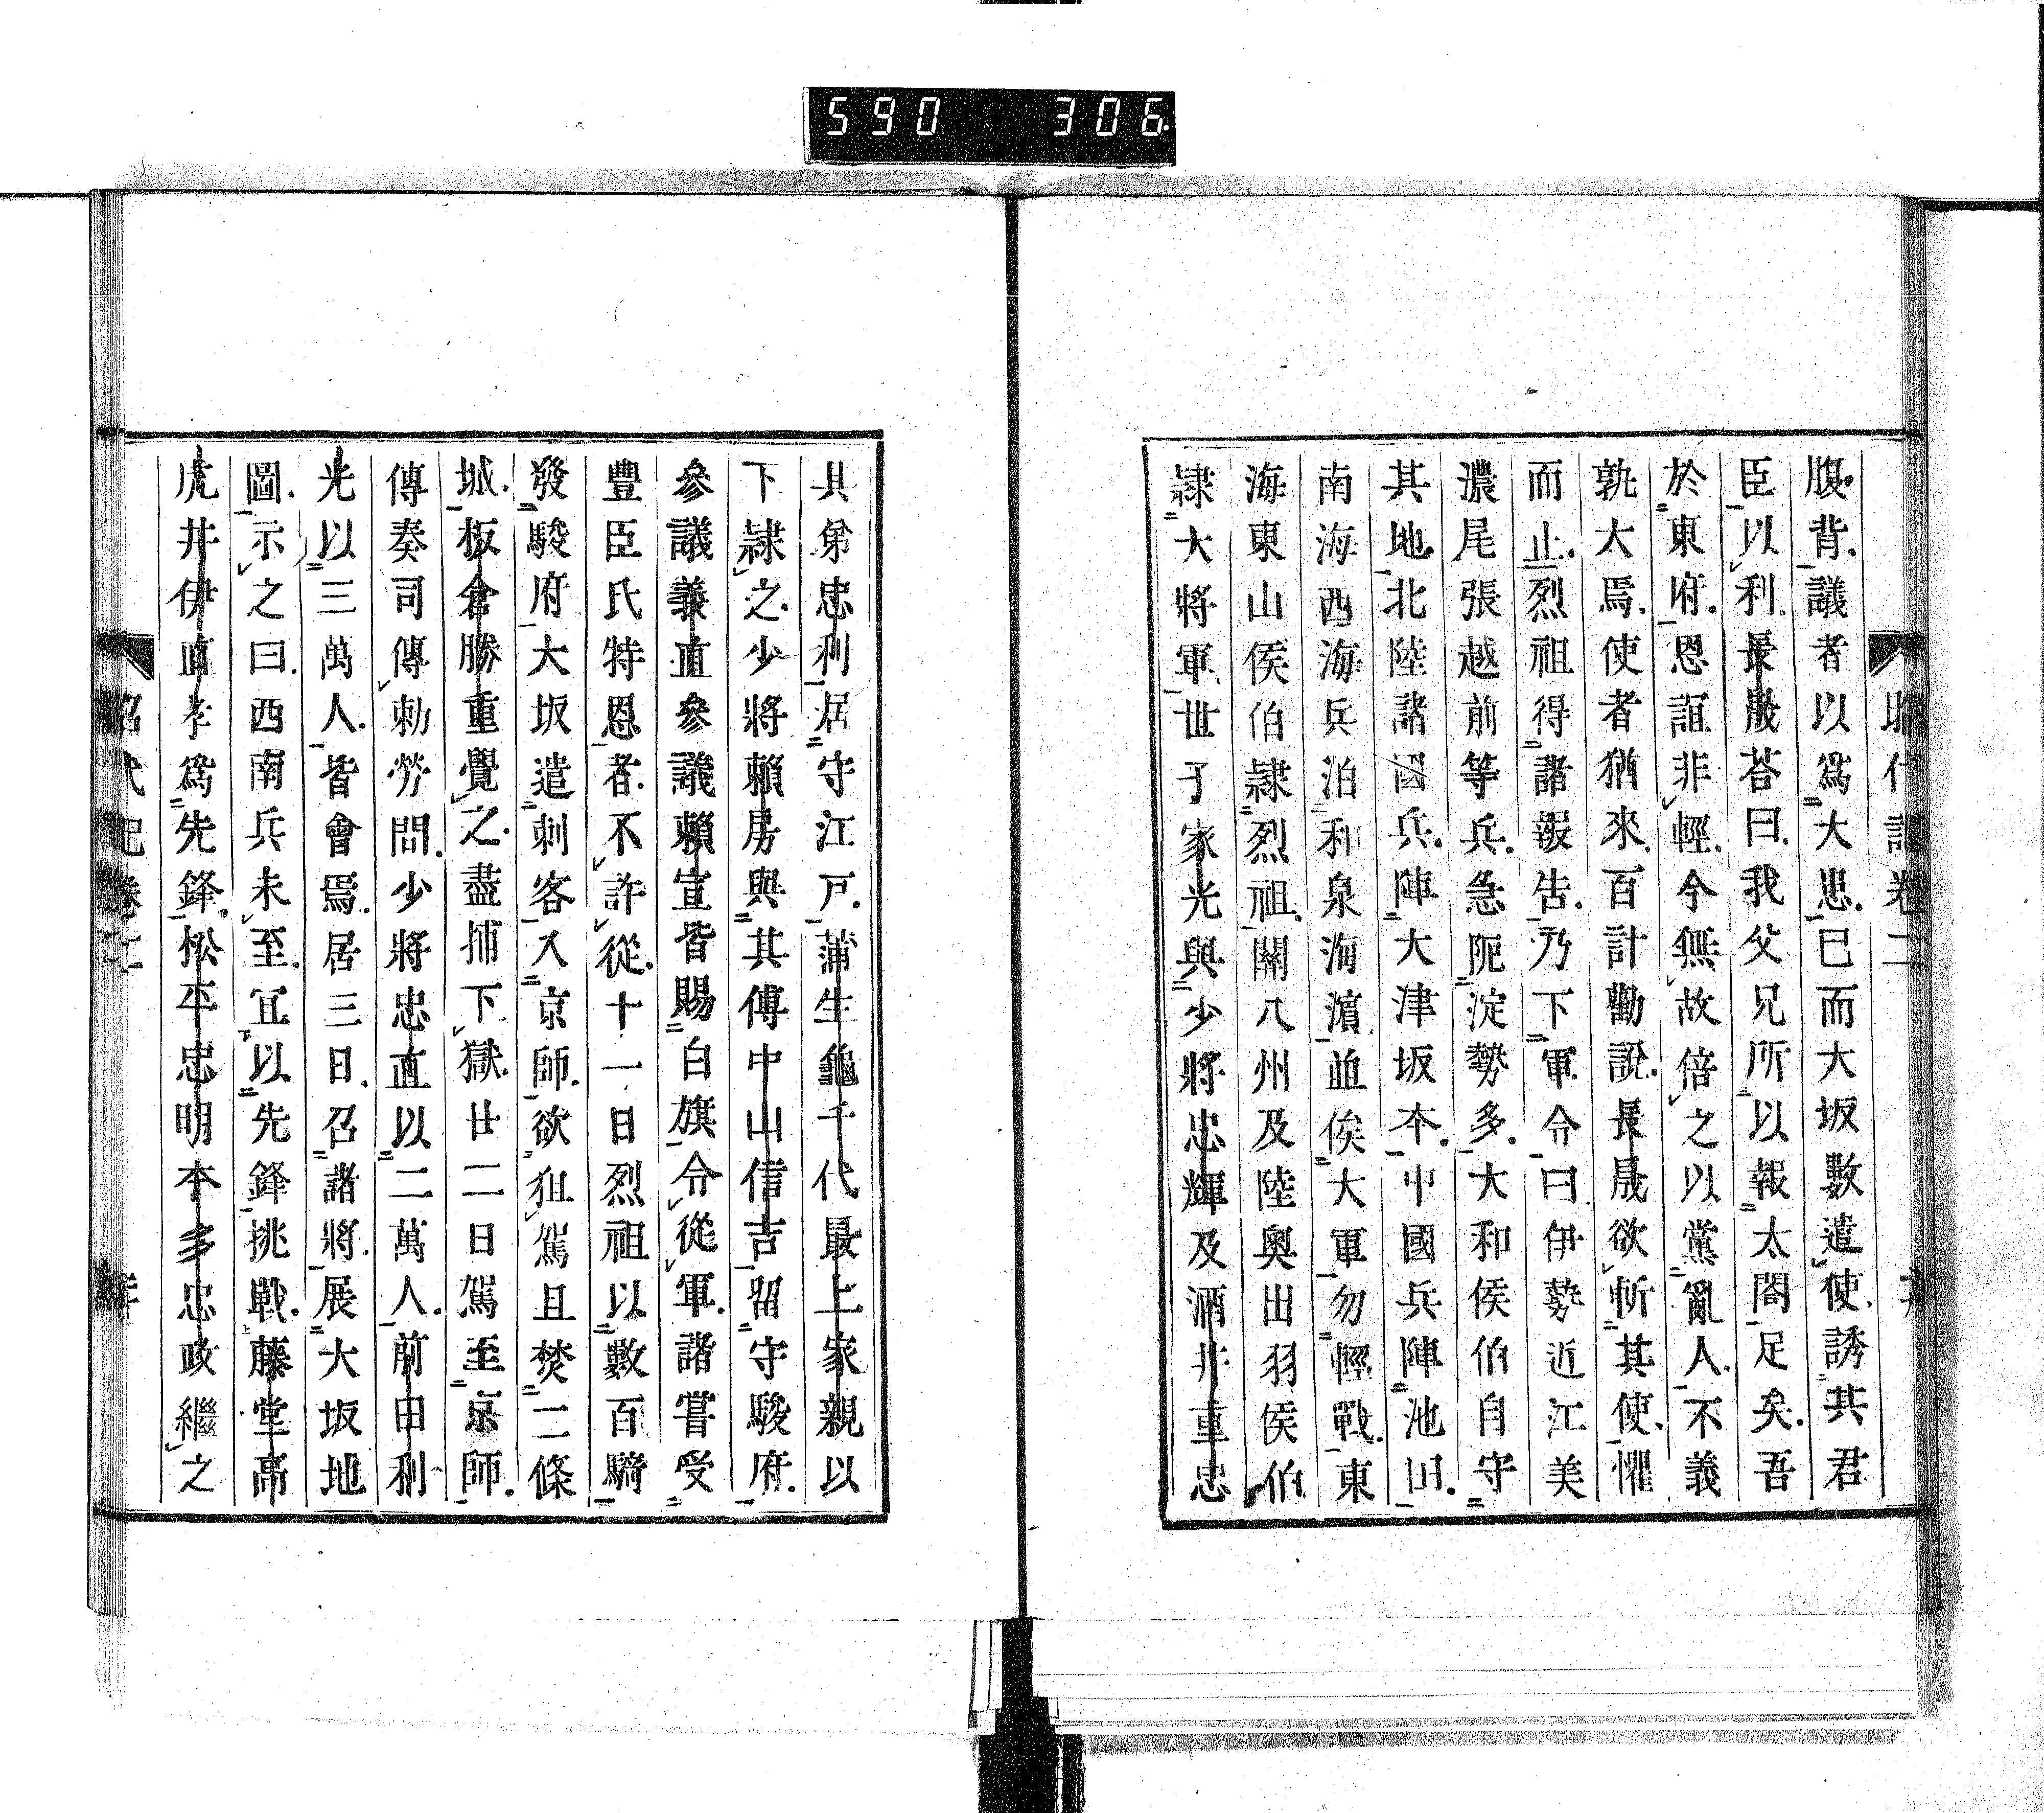 590 306
昭代記卷二
腹背議者以爲大患已而大坂數遣使誘其君
臣以利長晟荅曰我父兄所以報太閤足矣吾
於東府恩誼非輕今無故倍之以黨亂人不義
孰大焉使者猶來百計勸說長晟欲斬其使懼
而止烈祖得諸報告乃下軍令曰伊勢近江美
濃尾張越前等兵急阨淀勢多大和侯伯自守
其地北陸諸國兵陣大津坂本中國兵陣池田
南海西海兵泊和泉海濵並俟大軍勿輕戰東
海東山侯伯隷烈祖關八州及陸奧出羽侯伯
隷大將軍世子家光與少將忠輝及酒井重忠
其弟忠利居守江戸蒲生龜千代最上家親以
下隷之少將賴房與其傅中山信吉留守駿府
參議義直參議賴宣皆賜白旗令從軍諸嘗受
豐臣氏特恩者不許從十一日烈祖以數百騎
發駿府大坂遣刺客入京師欲狙駕且焚二條
城板倉勝重覺之盡捕下獄廿二日駕至京師
傳奏司傳勅勞問少將忠直以二萬人前田利
光以三萬人皆會焉居三日召諸將展大坂地
圖示之曰西南兵未至冝以先鋒挑戰藤堂高
虎井伊直孝爲先鋒松平忠明本多忠政繼之
昭代記卷二